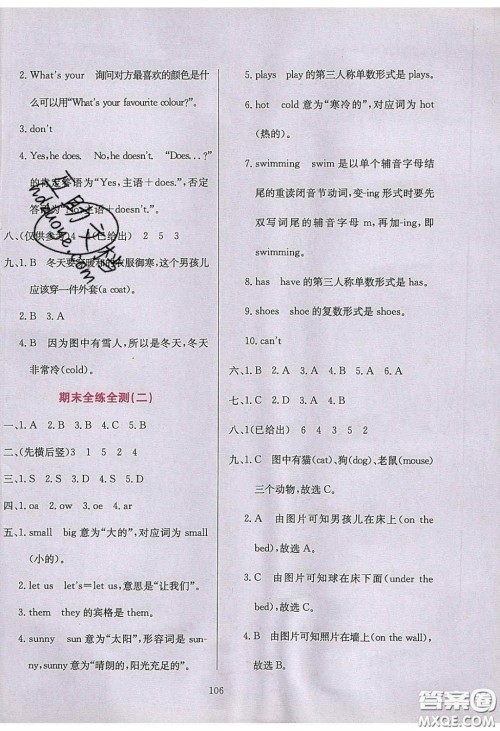 2. What's your 询问对方最喜欢的颜色是什
么可以用"What's your favourite colour?"。
3. don't
4. Yes, he does. No, he doesn't. "Does...?"
的肯定答语为"Yes, 主语+does.", 否定
答语为"No, 主语+doesn't."。
八、(仅供参考) 4 1(已给出) 2 5 3
九、1. B 冬天要穿暖和的衣服御寒, 这个男孩儿
应该穿一件外套(a coat)。
2. B 3. A
4. B 因为图中有雪人, 所以是冬天, 冬天
非常冷(cold)。
期末全练全测(二)
一、1. A 2. B 3. B 4. C 5. A
二、(先横后竖) 3 1 5 2 4
三、1. S 2. D 3. S 4. S 5. D
四、1. oa 2. ow 3. oe 4. ar
五、1. small big 意为"大的", 对应词为 small
(小的)。
2. let us let's=let us, 意思是"让我们"。
3. them they 的宾格是 them。
4. sunny sun 意为"太阳", 形容词是 sun-
ny, sunny 意为"晴朗的, 阳光充足的"。
5. plays play 的第三人称单数形式是 plays。
6. hot cold 意为"寒冷的", 对应词为 hot
(热的)。
7. swimming swim 是以单个辅音字母结
尾的重读闭音节动词, 变-ing 形式时要先
双写词尾的辅音字母 m, 再加-ing, 即
swimming。
8. has have 的第三人称单数形式是 has。
9. shoes shoe 的复数形式是 shoes。
10. can't
六、1. B 2. A 3. A 4. B 5. B
七、1. C 2. B 3. B 4. A
八、1(已给出) 6 4 3 5 2
九、1. C 图中有猫(cat)、狗(dog)、老鼠(mouse)
三个动物, 故选 C。
2. A 由图片可知男孩儿在床上(on the
bed), 故选 A。
3. C 由图片可知球在床下面(under the
bed), 故选 C。
4. B 由图片可知照片在墙上(on the
wall), 故选 B。
106
答案圈
MXQE.COM